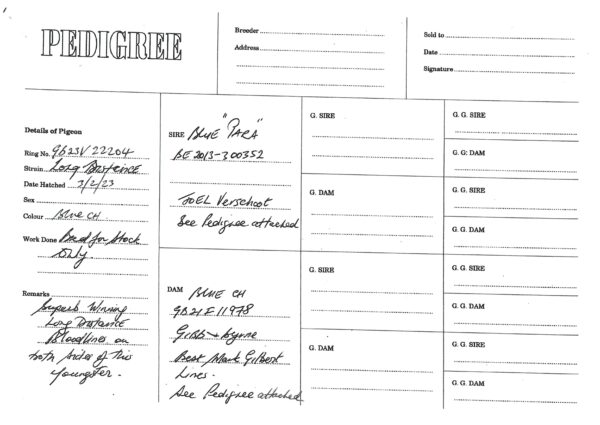 PEDIGREE
Breeder
Address
Sold to
Date
Signature
Details of Pigeon
Ring No. GB23V 22204
Strain Long Distance
Date Hatched 3/2/23
Sex
Colour Blue CH
Work Done Bred for Stock
Only
Remarks
Superb Winning
Long Distance
Bloodlines on
both sides of this
Youngster.
SIRE BLUE "PARA"
BE 2013-300352
JOEL Verschoot
See Pedigree attached
DAM BLUE CH
GB21E11978
Gibb & Byrne
Best Mark Gilbert
Lines.
See Pedigree attached
G. SIRE
G. DAM
G. SIRE
G. DAM
G. G. SIRE
G. G: DAM
G. G. SIRE
G. G. DAM
G. G. SIRE
G. G. DAM
G. G. SIRE
G. G. DAM